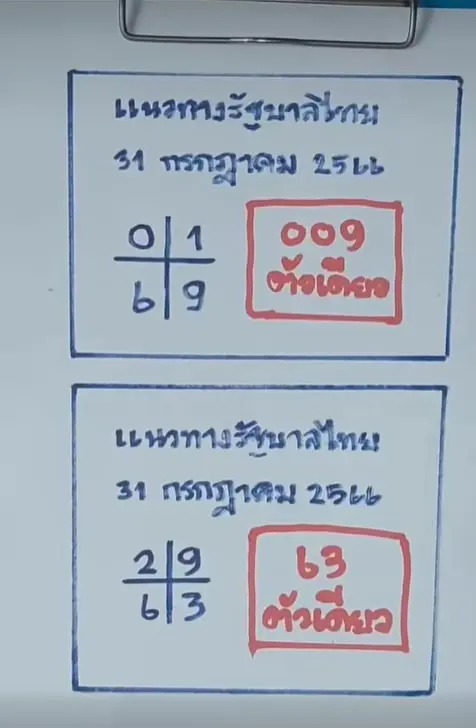 แนวทางรัฐบาลไทย
31 กรกฎาคม 2566
0 1
6 9
009
ตัวเดียว
แนวทางรัฐบาลไทย
31 กรกฎาคม 2566
2 9
6 3
63
ตัวเดียว